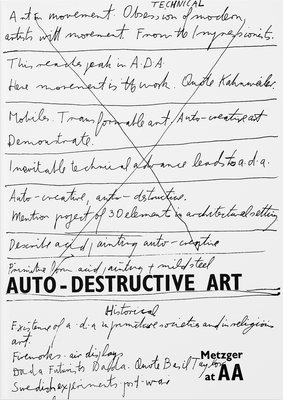 TECHNICAL
Art in movement. Obsession of modern
artists with movement From the Impressionists.
This reaches peak in A.D.A
Here movement is the work. Quote Kahnweiler.
Mobiles. Transformable art, Auto-creative art
Demonstrate.
Inevitable technical advance leads to a.d.a.
Auto-creative, auto-destructive.
Mention project of 3D element in architectural setting
Describe acid painting auto-creative
Primitive form acid painting + mild steel
AUTO-DESTRUCTIVE ART
Historical
Existence of a-d-a in primitive societies and in religious
art.
Fireworks-air displays
Dada Futurists Dalla. Quote Basil Taylor
Swedish experiments post-war
Metzger
at AA